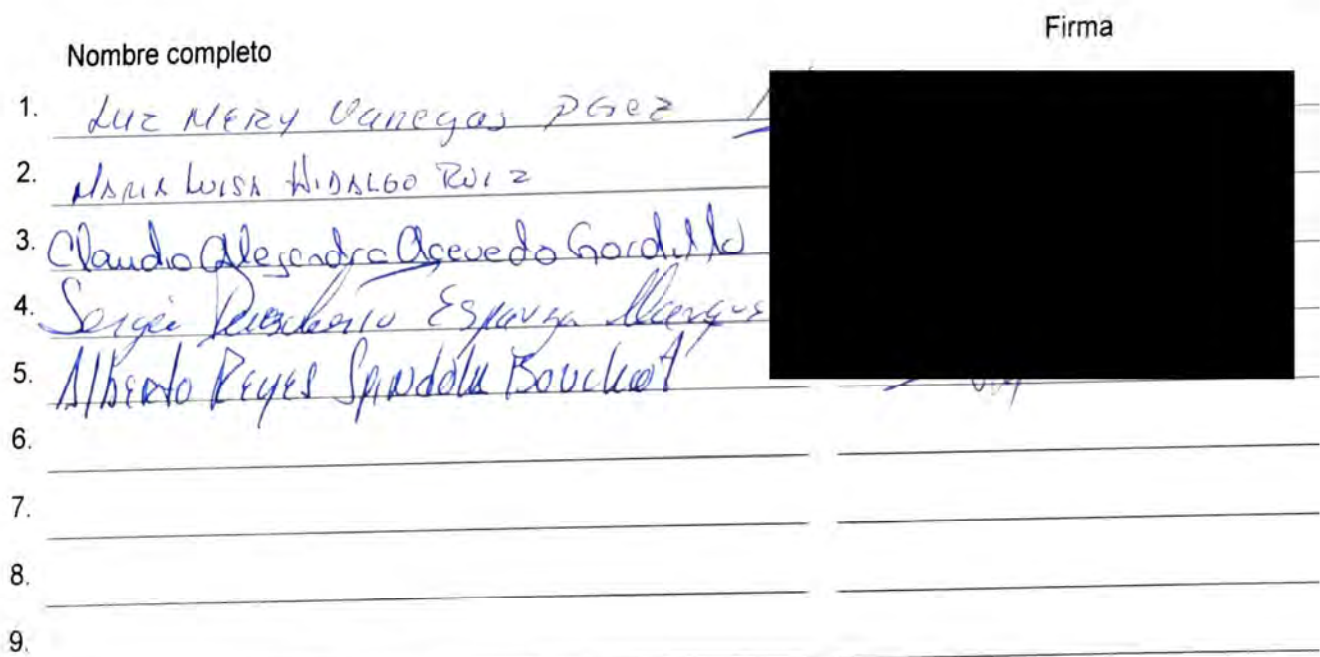 Firma
Nombre completo
1. Luz MERY Vanegas PErez
2. MARIA LUISA HIDALGO RUIZ
3. Claudia Alejandra Acevedo Gordillo
4. Sergio Esparza
5. Alberto REYES SpINdola Bouchot
6.
7.
8.
9.